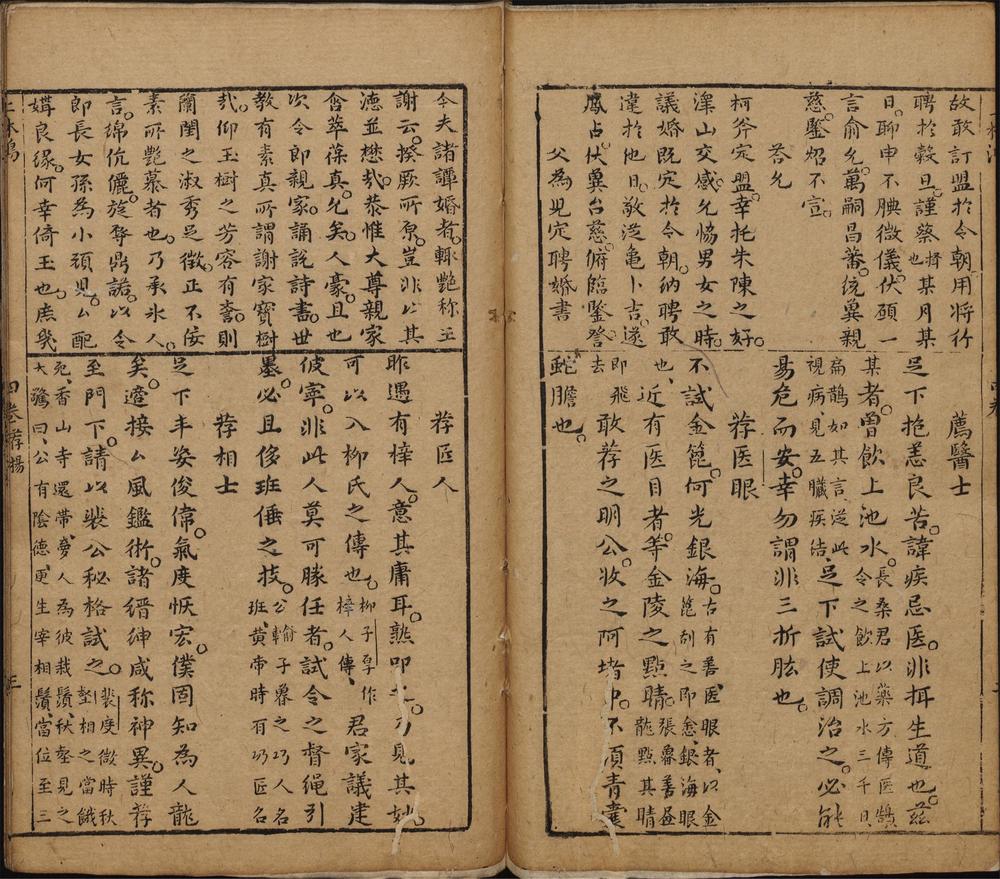 故敢訂盟於令朝用將行
聘於榖旦。謹蔡將也某月某
日。聊申不腆微儀。伏頋一
言俞允。萬嗣昌蕃。統冀親
慈。鑒炤不宣。
荅允
柯斧定盟。幸托朱陳之好。
山交感。允恊男女之時。
議婚既定於令朝。納聘敢
違於他日。敬從亀卜吉。遂
鳳占。伏冀台慈。俯臨鑒詧
父為児定聘婚書
薦醫士
足下抱恙良苦。諱疾忌医。非摂生道也。茲
某者。曽飲上池水。長桑君以藥方傳医鵲令之飲上池水三千日
扁鵲如其言、従此視病、見五臟疾結足下試使調治之。必能
易危而安。幸勿謂非三折肱也。
荐医眼
不試金篦。何光銀海。古有善医眼者、以金篦刮之即愈、銀海眼
也、近有医目者。等金陵之點睛。張善画龍點其睛
即飛去敢荐之明公。收之阿堵中。不湏青囊
蛇膽也。
今夫諸譚婚者。輙艶称王
謝云。揆厥所原。豈非以其
德並懋哉。恭惟大尊親家
含萃葆真。允矣人豪。且也
次令郎親家。誦說詩書。世
教有素真所謂謝家寶樹
哉。仰玉樹之芳容有斎。則
蘭閨之淑秀足徵。正不佞
素所艶慕者也。乃承氷人
言。綿伉儷。旋辱鼎諾。以令
郎長女孫為小頑児。厶配
媾良縁。何幸倚玉也。庶幾
荐匠人
昨遇有梓人。意其庸耳。熟叩之。乃見其妙。
可以入柳氏之傳也。柳子厚作梓人傳、君家議建
彼寧。非此人莫可勝任者。試令之督繩引
墨。必且侈班倕之技。公輸子魯之巧人名班、黄帝時有巧匠名
荐相士
足下丰姿俊偉。氣度恢宏。僕固知為人龍
矣。適接厶風鑑術。諸縉紳咸称神異。謹荐
至門下。請以裴公秘格試之。裴度微時秋壑相之當餓
死、香山寺還帶、夢人為彼栽鬚、秋壑見之
大驚曰、公有陰德、更生宰相鬚、當位至三
四巻荐揚